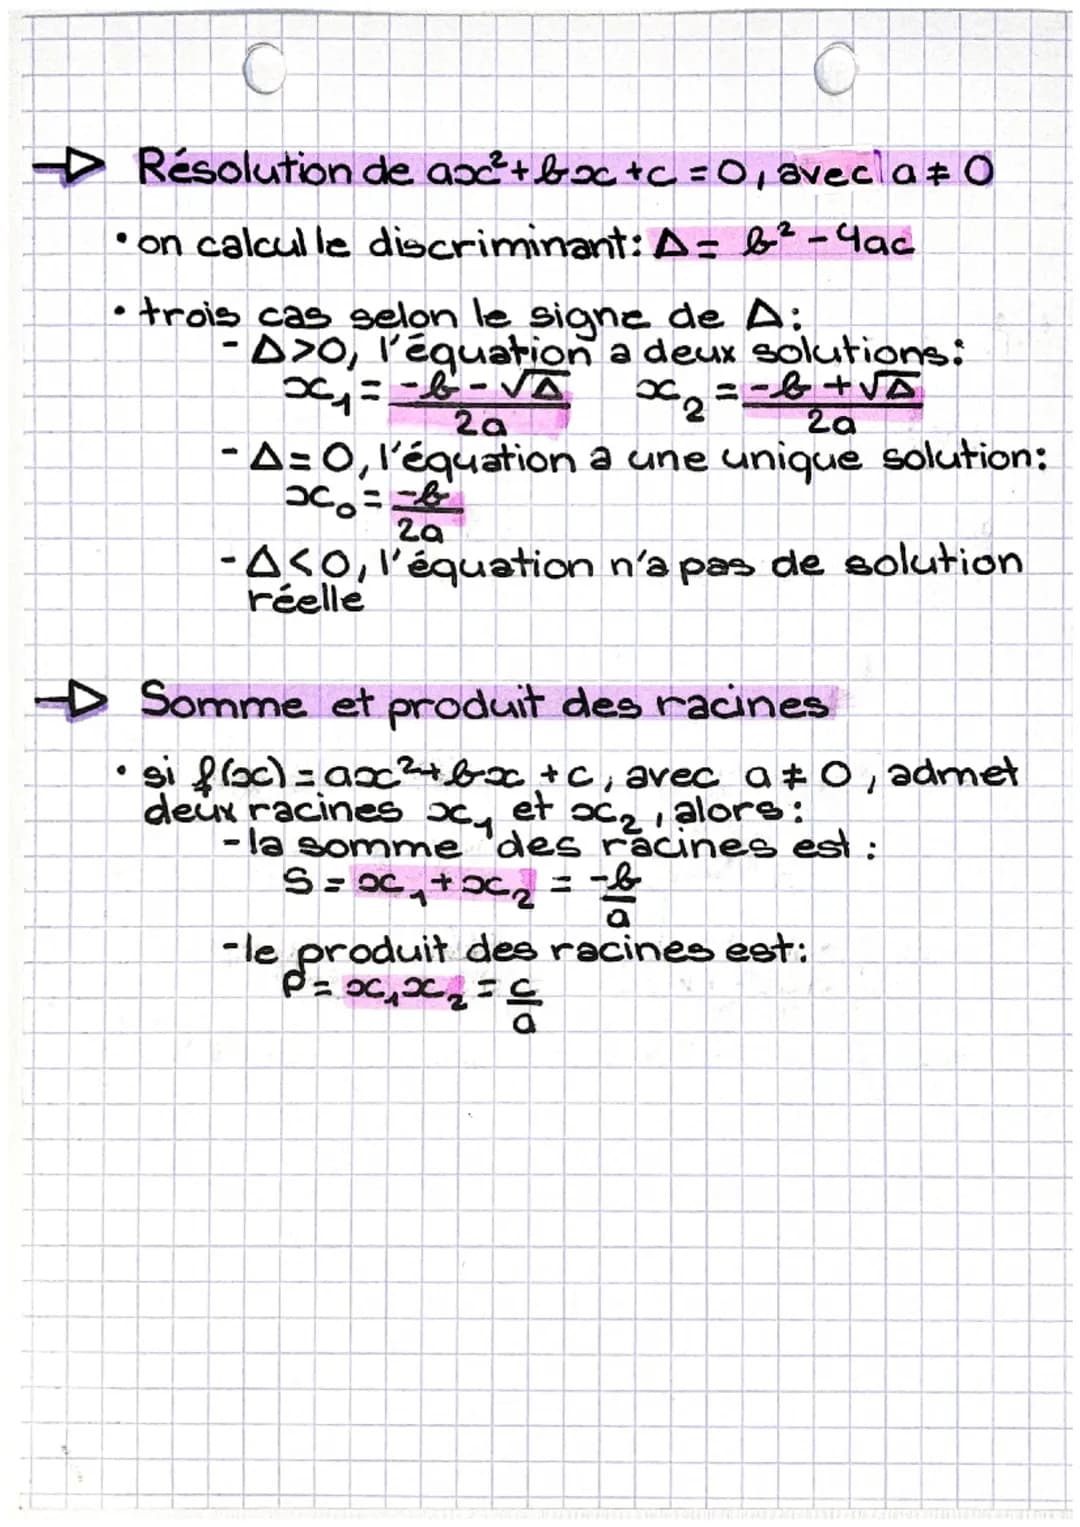 → Résolution de ax²+bx+c=0, avec a≠0
• on calcul le discriminant: Δ= b²-4ac
• trois cas selon le signe de Δ:
- Δ>0, l'équation a deux solutions:
x₁ = (-b-√Δ)/2a x₂ = (-b+√Δ)/2a
- Δ=0, l'équation a une unique solution:
x₀ = -b/2a
- Δ<0, l'équation n'a pas de solution
réelle
→ Somme et produit des racines
• si f(x)=ax²+bx+c, avec a≠0, admet
deux racines x₁ et x₂, alors:
- la somme des racines est:
S = x₁+x₂ = -b/a
- le produit des racines est:
P = x₁x₂ = c/a